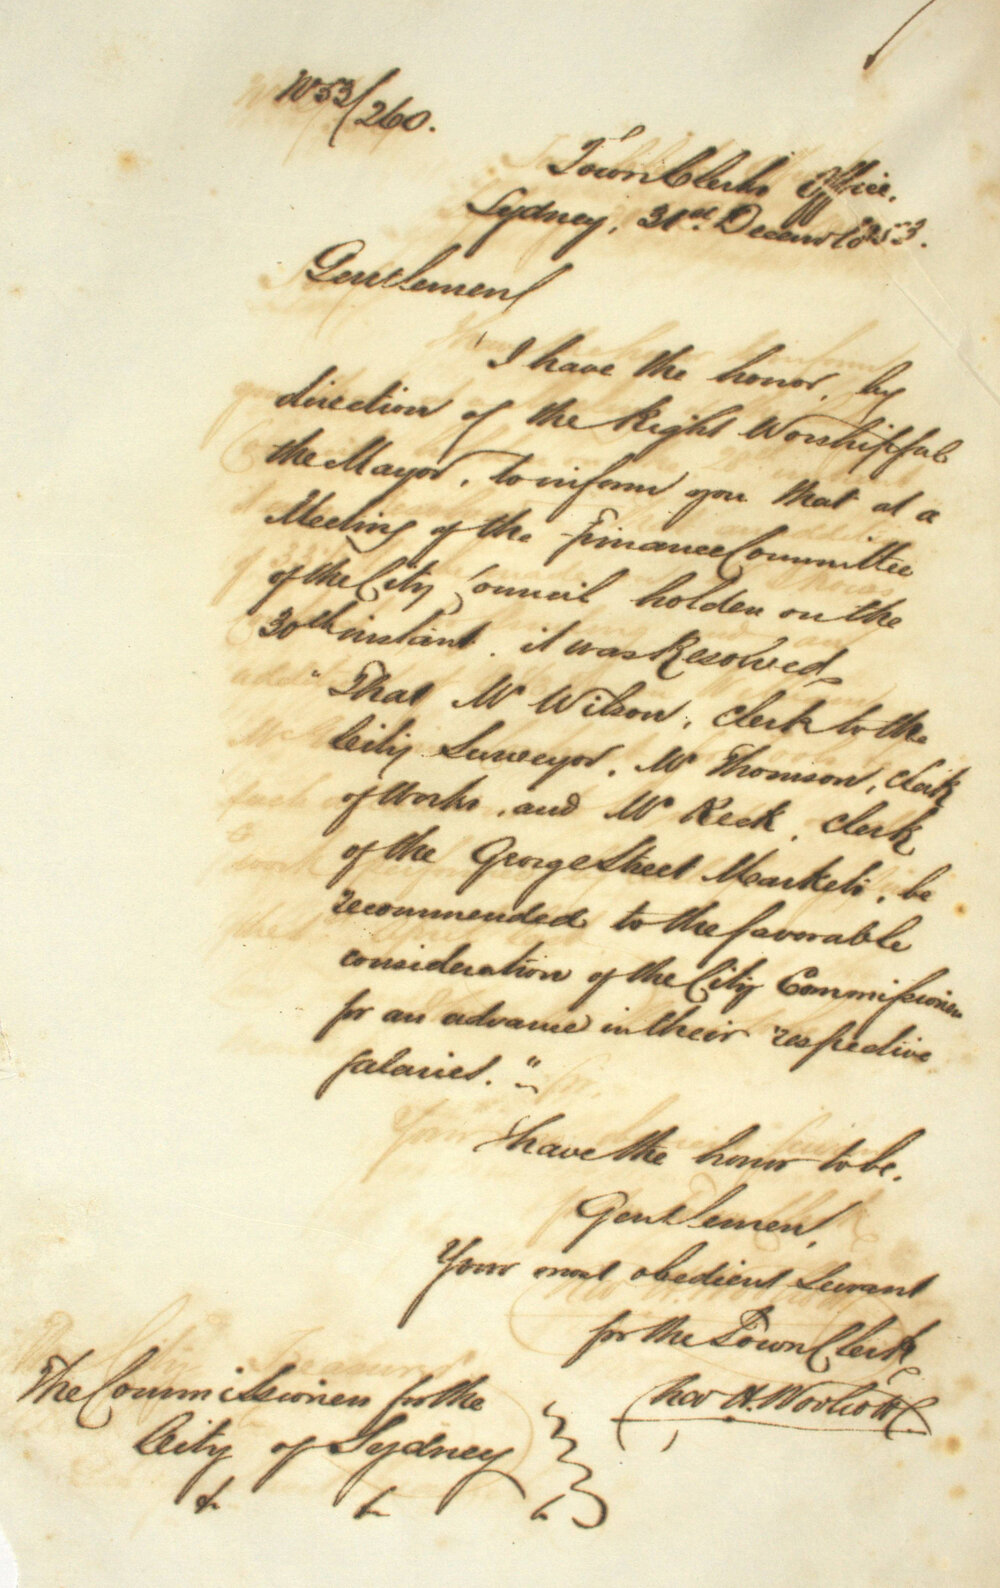 No 53/260.
Town Clerks Office.
Sydney, 31st Decemr 1853.
Gentlemen
I have the honor, by
direction of the Right Worshipful
the Mayor, to inform you that at a
Meeting of the Finance Committee
of the City Council holden on the
30th instant. it was Resolved
"That Mr Wilson, clerk to the
City Surveyor, Mr Thomson, clerk
of Works, and Mr Reek, clerk
of the George Street Markets, be
recommended to the favorable
consideration of the City Commissioners
for an advance in their respective
salaries."
I have the honor to be,
Gentlemen,
Your most obedient Servant
for the Town Clerk
Chas H. Woolcott
The Commissioners for the
City of Sydney
&c &c &c